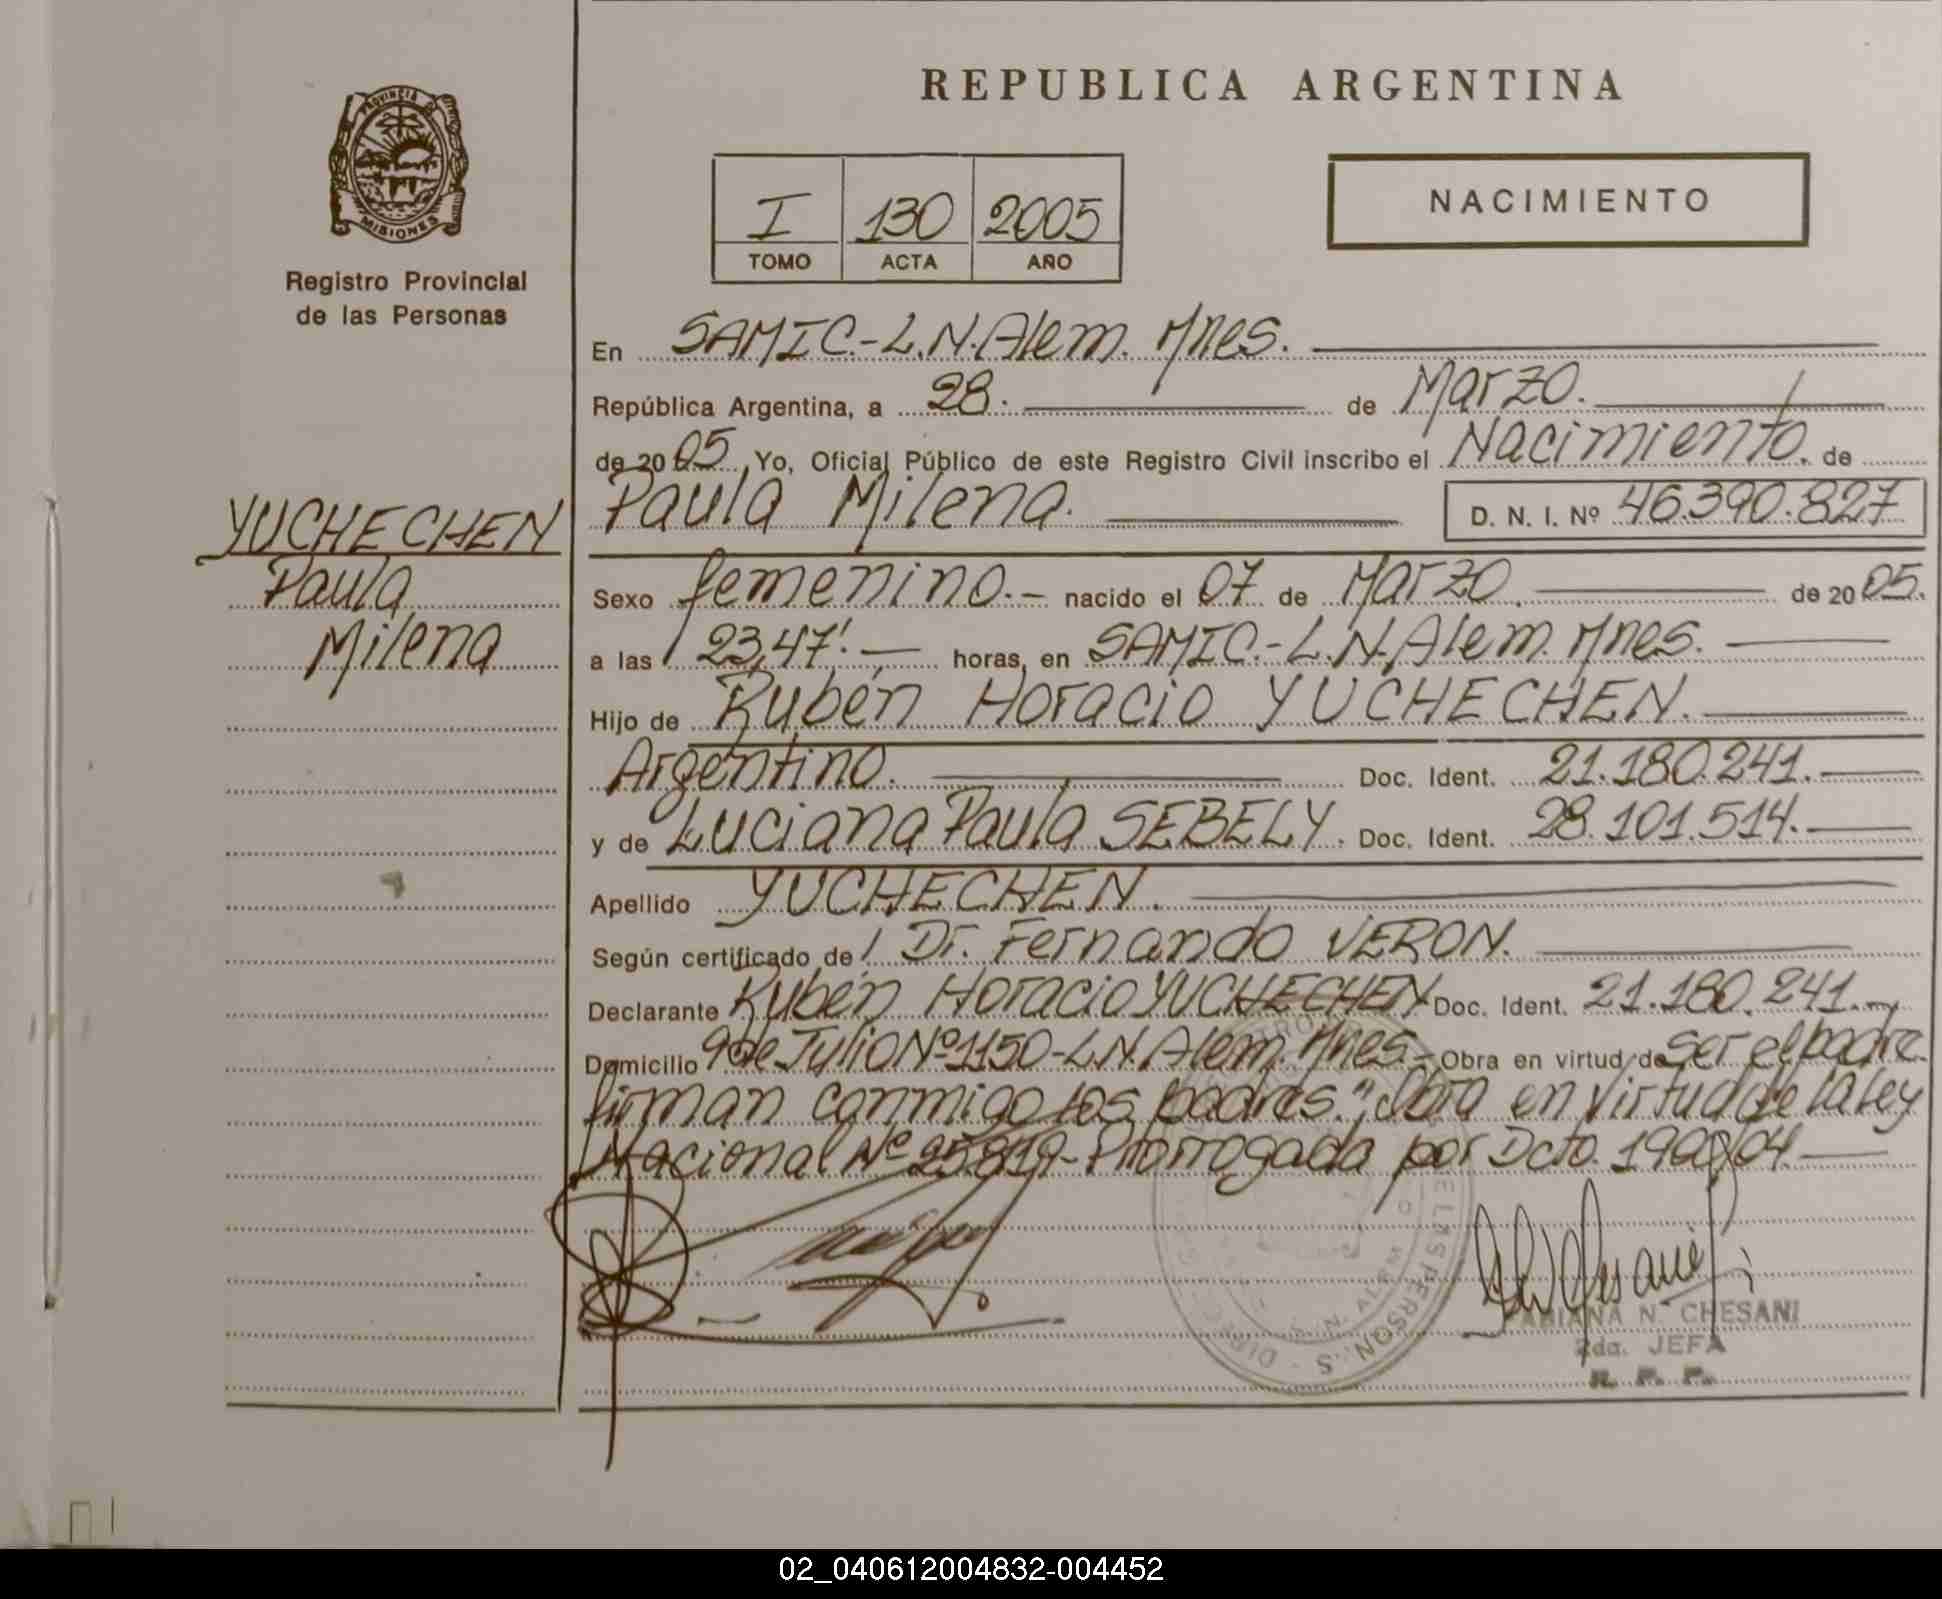 PROVINCIA D
MISIONES
Registro Provincial
de las Personas
YUCHECHEN
Paula
Milena
REPUBLICA ARGENTINA
I 130 2005
TOMO ACTA AÑO
NACIMIENTO
En SAMIC.-L.N.Alem. Mnes.
República Argentina, a 28. de Marzo.
de 2005 Yo, Oficial Público de este Registro Civil inscribo el Nacimiento. de
Paula Milena. D. N. I. Nº 46.390.827
Sexo femenino.- nacido el 07 de Marzo de 2005.
a las 23,47'.- horas, en SAMIC.-L.N.Alem. Mnes.
Hijo de Rubén Horacio YUCHECHEN.
Argentino. Doc. Ident. 21.180.241.
y de Luciana Paula SEBELY. Doc. Ident. 28.101.514.
Apellido YUCHECHEN.
Según certificado de Dr. Fernando VERON.
Declarante Rubén Horacio YUCHECHEN Doc. Ident. 21.180.241.
Domicilio 9 de Julio Nº 1150-L.N.Alem. Mnes.- Obra en virtud de Ser el padre.
firman conmigo los padres.", Obra en virtud de la ley
Nacional Nº 25.819-Prorrogada por Dcto. 1900/04.
DE LAS PERSONAS
L. N. ALEM
FABIANA N. CHESANI
2da. JEFA
R. P. P.
02_040612004832-004452